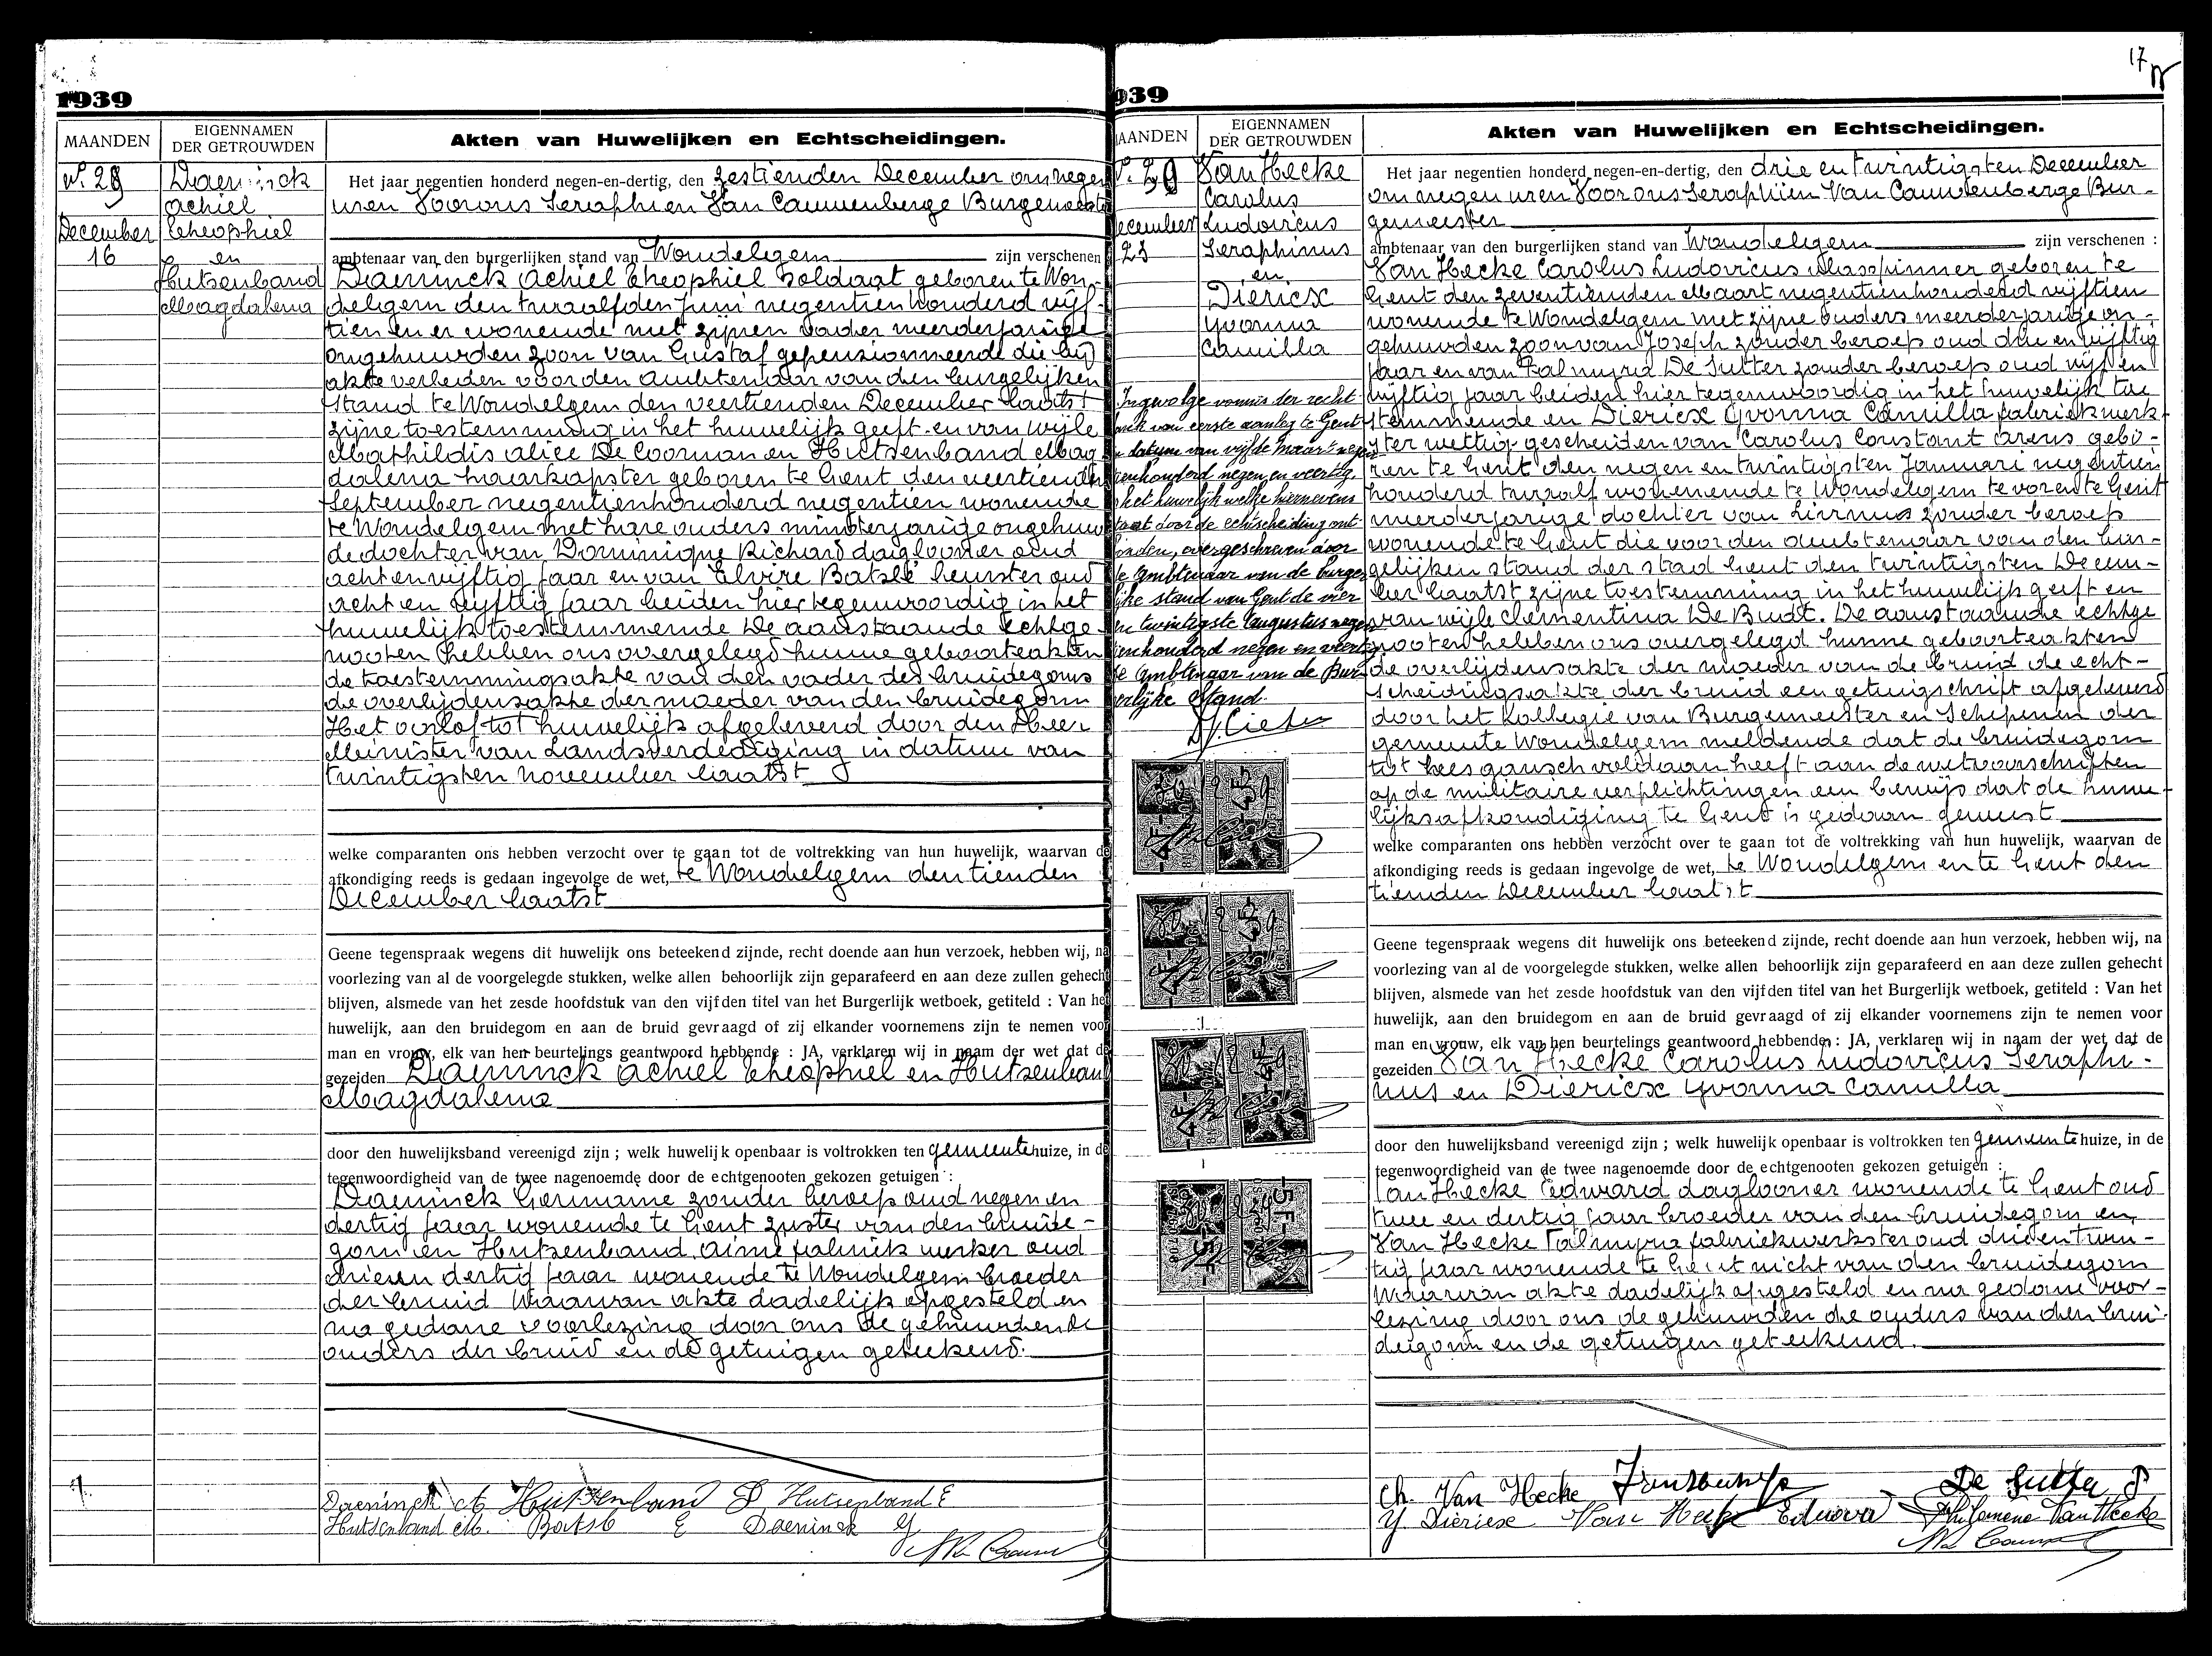 1939
MAANDEN
EIGENNAMEN
DER GETROUWDEN
Akten van Huwelijken en Echtscheidingen.
N. 28
December
16
Daeninck
Achiel
Theophiel
en
Hutsenband
Magdalena
Het jaar negentien honderd negen-en-dertig, den zestienden December om negen
uren Voor ons Seraphien Van Cauwenberge Burgemeester
ambtenaar van den burgerlijken stand van Wondelgem zijn verschenen
Daeninck Achiel Theophiel soldaat geboren te Won-
delgem den twaalfden Juni negentien honderd vijf-
tien en er wonende met zijnen vader meerderjarige
ongehuwden zoon van Gustaf gepensionneerde die bij
akte verleden voor den Ambtenaar van den burgelijken
stand te Wondelgem den veertienden December laatst
zijne toestemming in het huwelijk geeft en van wijle
Mathildis Alice De Cooman en Hutsenband Mag
dalena haarkapster geboren te Gent den veertienden
September negentienhonderd negentien wonende
te Wondelgem met hare ouders minderjarige ongehuw
de dochter van Dominique Richard daglooner oud
acht en vijftig jaar en van Elvire Batslé keurster oud
acht en vijftig jaar beiden hier tegenwoordig in het
huwelijk toestemmende De aanstaande echtge-
nooten hebben ons overgelegd hunne geboorteakten
de toestemmingsakte van den vader des bruidegoms
de overlijdensakte der moeder van den bruidegom
Het oorlof tot huwelijk afgeleverd door den Heer
Minister van Landsverdediging in datum van
twintigsten november laatst
welke comparanten ons hebben verzocht over te gaan tot de voltrekking van hun huwelijk, waarvan de
afkondiging reeds is gedaan ingevolge de wet, te Wondelgem den tienden
December laatst
Geene tegenspraak wegens dit huwelijk ons beteekend zijnde, recht doende aan hun verzoek, hebben wij, na
voorlezing van al de voorgelegde stukken, welke allen behoorlijk zijn geparafeerd en aan deze zullen gehecht
blijven, alsmede van het zesde hoofdstuk van den vijfden titel van het Burgerlijk wetboek, getiteld : Van het
huwelijk, aan den bruidegom en aan de bruid gevraagd of zij elkander voornemens zijn te nemen voor
man en vrouw, elk van hen beurtelings geantwoord hebbende : JA, verklaren wij in naam der wet dat de
gezeiden Daeninck Achiel Theophiel en Hutsenban
Magdalena
door den huwelijksband vereenigd zijn ; welk huwelijk openbaar is voltrokken ten gemeentehuize, in de
tegenwoordigheid van de twee nagenoemde door de echtgenooten gekozen getuigen :
Daeninck Germaine zonder beroep oud negen en
dertig jaar wonende te Gent zuster van den bruide-
gom en Hutsenband Aimé fabriek werker oud
drieen dertig jaar wonende te Wondelgem broeder
der bruid Waarvan akte dadelijk opgesteld en
na gedane voorlezing door ons de gehuwden de
ouders der bruid en de getuigen geteekend.
Daeninck A Hutsenband D Hutsenband E
Hutsenband M. Batslé E Daeninck G
17
939
AANDEN
EIGENNAMEN
DER GETROUWDEN
Akten van Huwelijken en Echtscheidingen.
N. 29
ecember
23
Van Hecke
Carolus
Ludovicus
Seraphinus
en
Diericx
Yvonna
Camilla
Ingevolge vonnis der recht-
bank van eerste aanleg te Gent
in datum van vijfde Maart negen
tienhonderd negen en veertig,
is het huwelijk welke hiernevens
staat door de echtscheiding ont-
bonden, overgeschreven door
de Ambtenaar van de burger
lijke stand van Gent de vier
en twintigste Augustus negen
tienhonderd negen en veertig
De Ambtenaar van de Bur
gerlijke Stand.
Het jaar negentien honderd negen-en-dertig, den drie en twintigsten December
om negen uren Voor ons Seraphien Van Cauwenberge Bur-
gemeester
ambtenaar van den burgerlijken stand van Wondelgem zijn verschenen :
Van Hecke Carolus Ludovicus vlasspinner geboren te
Gent den zeventienden Maart negentienhonderd vijftien
wonende te Wondelgem met zijne ouders meerderjarige on-
gehuwden zoon van Joseph zonder beroep oud drie en vijftig
jaar en van Palmyra De Sutter zonder beroep oud vijf en
vijftig jaar beiden hier tegenwoordig in het huwelijk toe
stemmende en Diericx Yvonna Camilla fabriekwerk-
ster wettig gescheiden van Carolus Constant Arens gebo-
ren te Gent den negen en twintigsten Januari negentien
honderd twaalf wonenende te Wondelgem te voren te Gent
meerderjarige dochter van Livinus zonder beroep
wonende te Gent die voor den ambtenaar van den bur-
gelijken stand der stad Gent den twintigsten Decem-
ber laatst zijne toestemming in het huwelijk geeft en
van wijle Clementina De Budt. De aanstaande echtge
nooten hebben ons overgelegd hunne geboorteakten
de overlijdensakte der moeder van de bruid de echt-
scheidingsakte der bruid een getuigschrift afgeleverd
door het Kollegie van Burgemeester en Schepenen der
gemeente Wondelgem meldende dat de bruidegom
tot hees gansch voldaan heeft aan de wetvoorschriften
op de militaire verplichtingen een bewijs dat de huwe-
lijksafkondiging te Gent is gedaan geweest
welke comparanten ons hebben verzocht over te gaan tot de voltrekking van hun huwelijk, waarvan de
afkondiging reeds is gedaan ingevolge de wet, te Wondelgem en te Gent den
tienden December laatst
Geene tegenspraak wegens dit huwelijk ons beteekend zijnde, recht doende aan hun verzoek, hebben wij, na
voorlezing van al de voorgelegde stukken, welke allen behoorlijk zijn geparafeerd en aan deze zullen gehecht
blijven, alsmede van het zesde hoofdstuk van den vijfden titel van het Burgerlijk wetboek, getiteld : Van het
huwelijk, aan den bruidegom en aan de bruid gevraagd of zij elkander voornemens zijn te nemen voor
man en vrouw, elk van hen beurtelings geantwoord hebbende : JA, verklaren wij in naam der wet dat de
gezeiden Van Hecke Carolus Ludovicus Seraphi-
nus en Diericx Yvonna Camilla
door den huwelijksband vereenigd zijn ; welk huwelijk openbaar is voltrokken ten gemeentehuize, in de
tegenwoordigheid van de twee nagenoemde door de echtgenooten gekozen getuigen :
Van Hecke Edward daglooner wonende te Gent oud
twee en dertig jaar broeder van den bruidegom en
Van Hecke Palmyra fabriekwerkster oud drieentwin-
tig jaar wonende te Gent nicht van den bruidegom
Waarvan akte dadelijk opgesteld en na gedane voor-
lezing door ons de gehuwden de ouders van den brui-
degom en de getuigen geteekend.
Ch. Van Hecke De Sutter P
Y Diericx Van Hecke Eduard Philomene Van Hecke